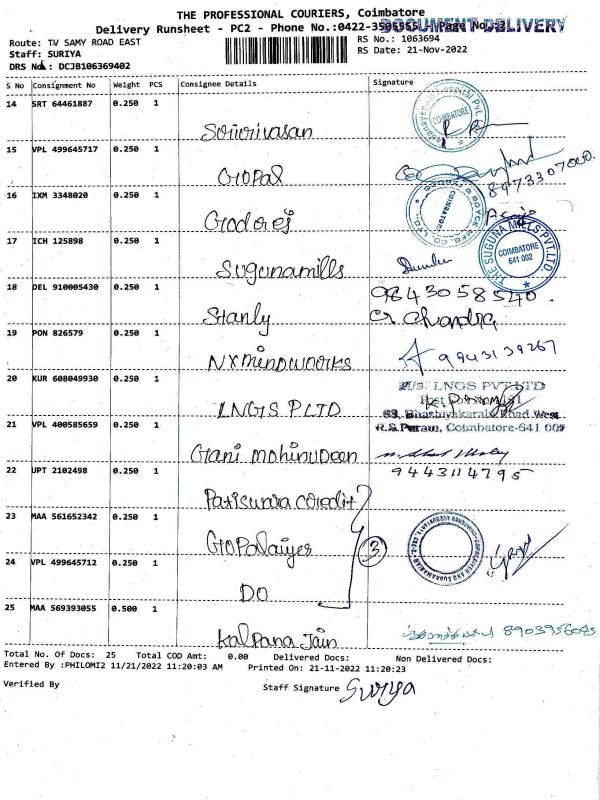 THE PROFESSIONAL COURIERS, Coimbatore
Delivery Runsheet - PC2 - Phone No.:0422-3505555 Page No.:2
DOCUMENT DELIVERY
Route: TV SAMY ROAD EAST RS No.: 1063694
Staff: SURIYA RS Date: 21-Nov-2022
DRS No.: DCJB106369402
S No Consignment No Weight PCS Consignee Details Signature
14 SRT 64461887 0.250 1
COIMBATORE
15 VPL 499645717 0.250 1
Gopal
8973307000.
16 IXM 3348020 0.250 1
Godrej
17 ICH 125898 0.250 1
THE SUGUNA MILLS PVT.LTD.
COIMBATORE
641 002
Sugunamills
18 DEL 910005430 0.250 1 9843058540.
Stanly G. Chandra
19 PON 826579 0.250 1
NXMINDWOORKS 9943139267
20 KUR 608049930 0.250 1 M/s. LNGS PVT LTD
LNGS PLTD
R.S.Puram, Coimbatore-641 002
21 VPL 400585659 0.250 1
Gani mohinudean
22 UPT 2102498 0.250 1 9443114795
23 MAA 561652342 0.250 1
Gopalaiyer
3
24 VPL 499645712 0.250 1
DO
25 MAA 569393055 0.500 1
Kalpana Jain 8903956045
Total No. Of Docs: 25 Total COD Amt: 0.00 Delivered Docs: Non Delivered Docs:
Entered By :PHILOMI2 11/21/2022 11:20:03 AM Printed On: 21-11-2022 11:20:23
Verified By Staff Signature Suriya